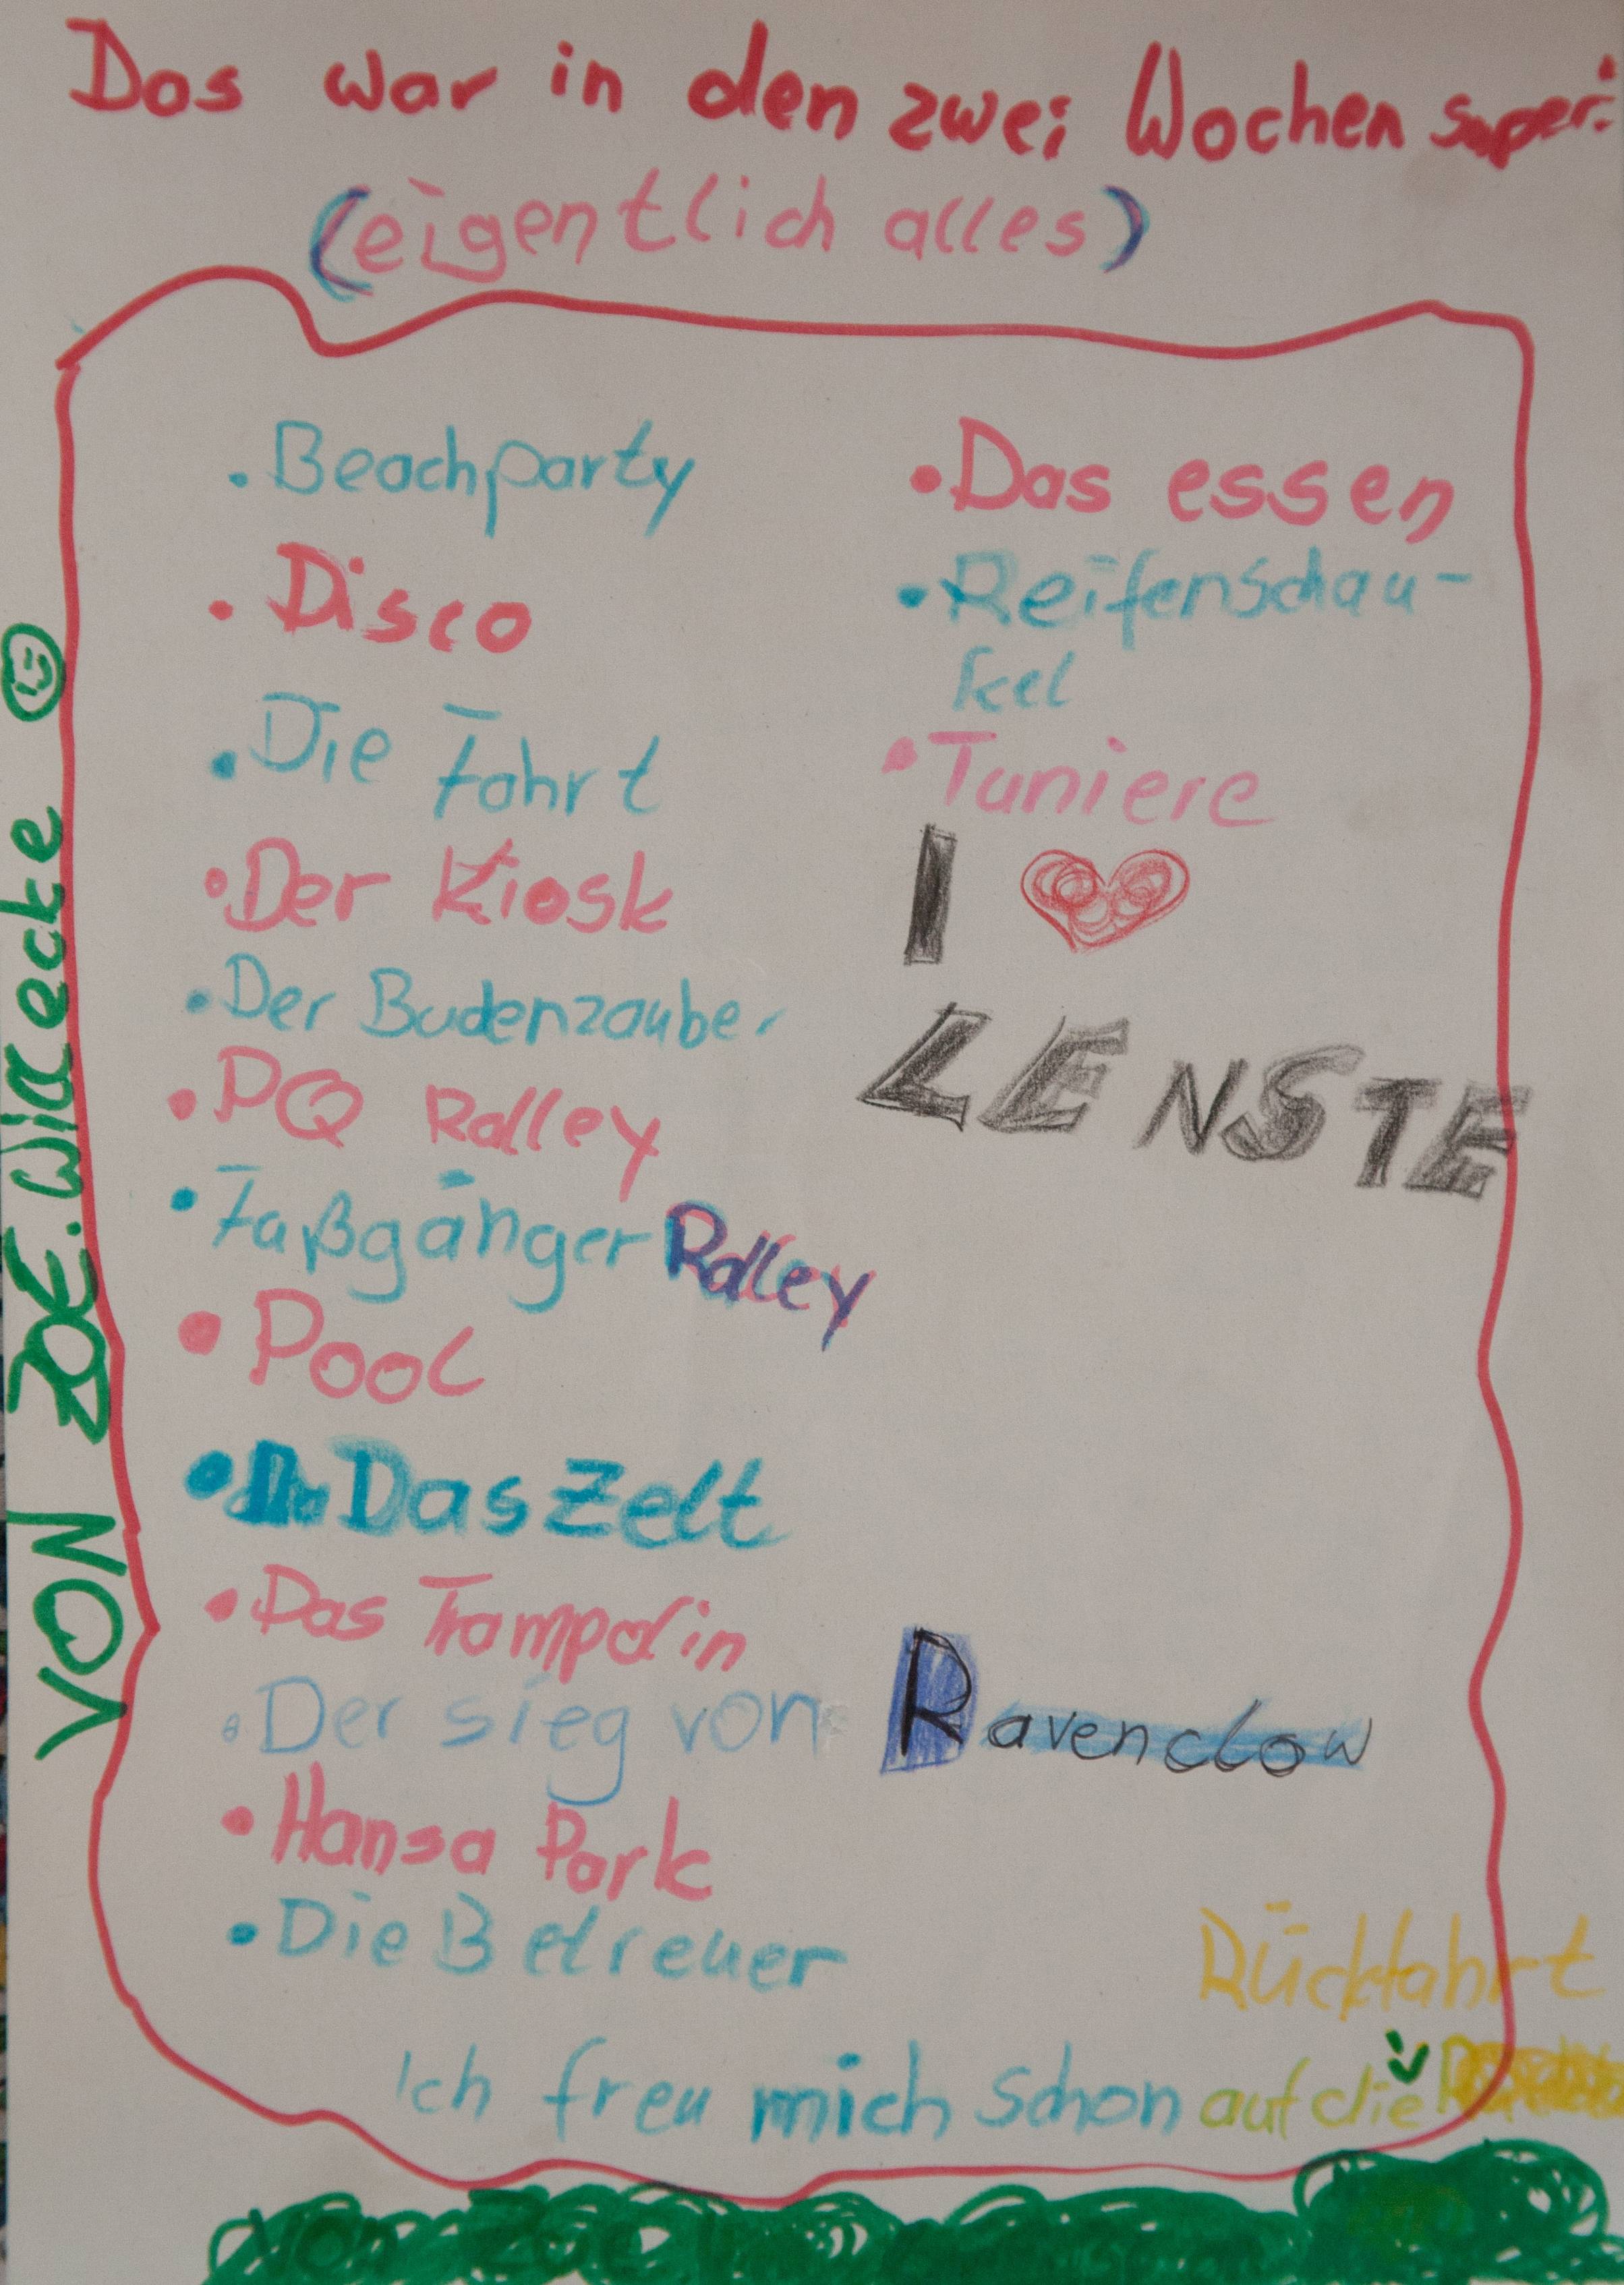 Das war in den zwei Wochen super:
(eigentlich alles)
• Beachparty
• Disco
• Die Fahrt
• Der Kiosk
• Der Budenzauber
• PQ Ralley
• Faßgänger Ralley
• Pool
• Das Zelt
• Das Trampolin
• Der sieg von Ravenclow
• Hansa Park
• Die Betreuer
• Das essen
• Reifenschau-
kel
• Tuniere
I ♥
LENSTE
Rückfahrt
Ich freu mich schon auf die
VON ZOE.